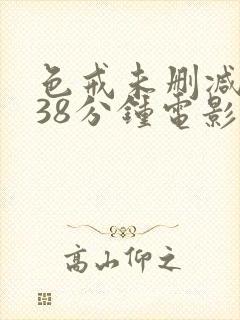 色戒未删减
38分鍾電影
高山仰之